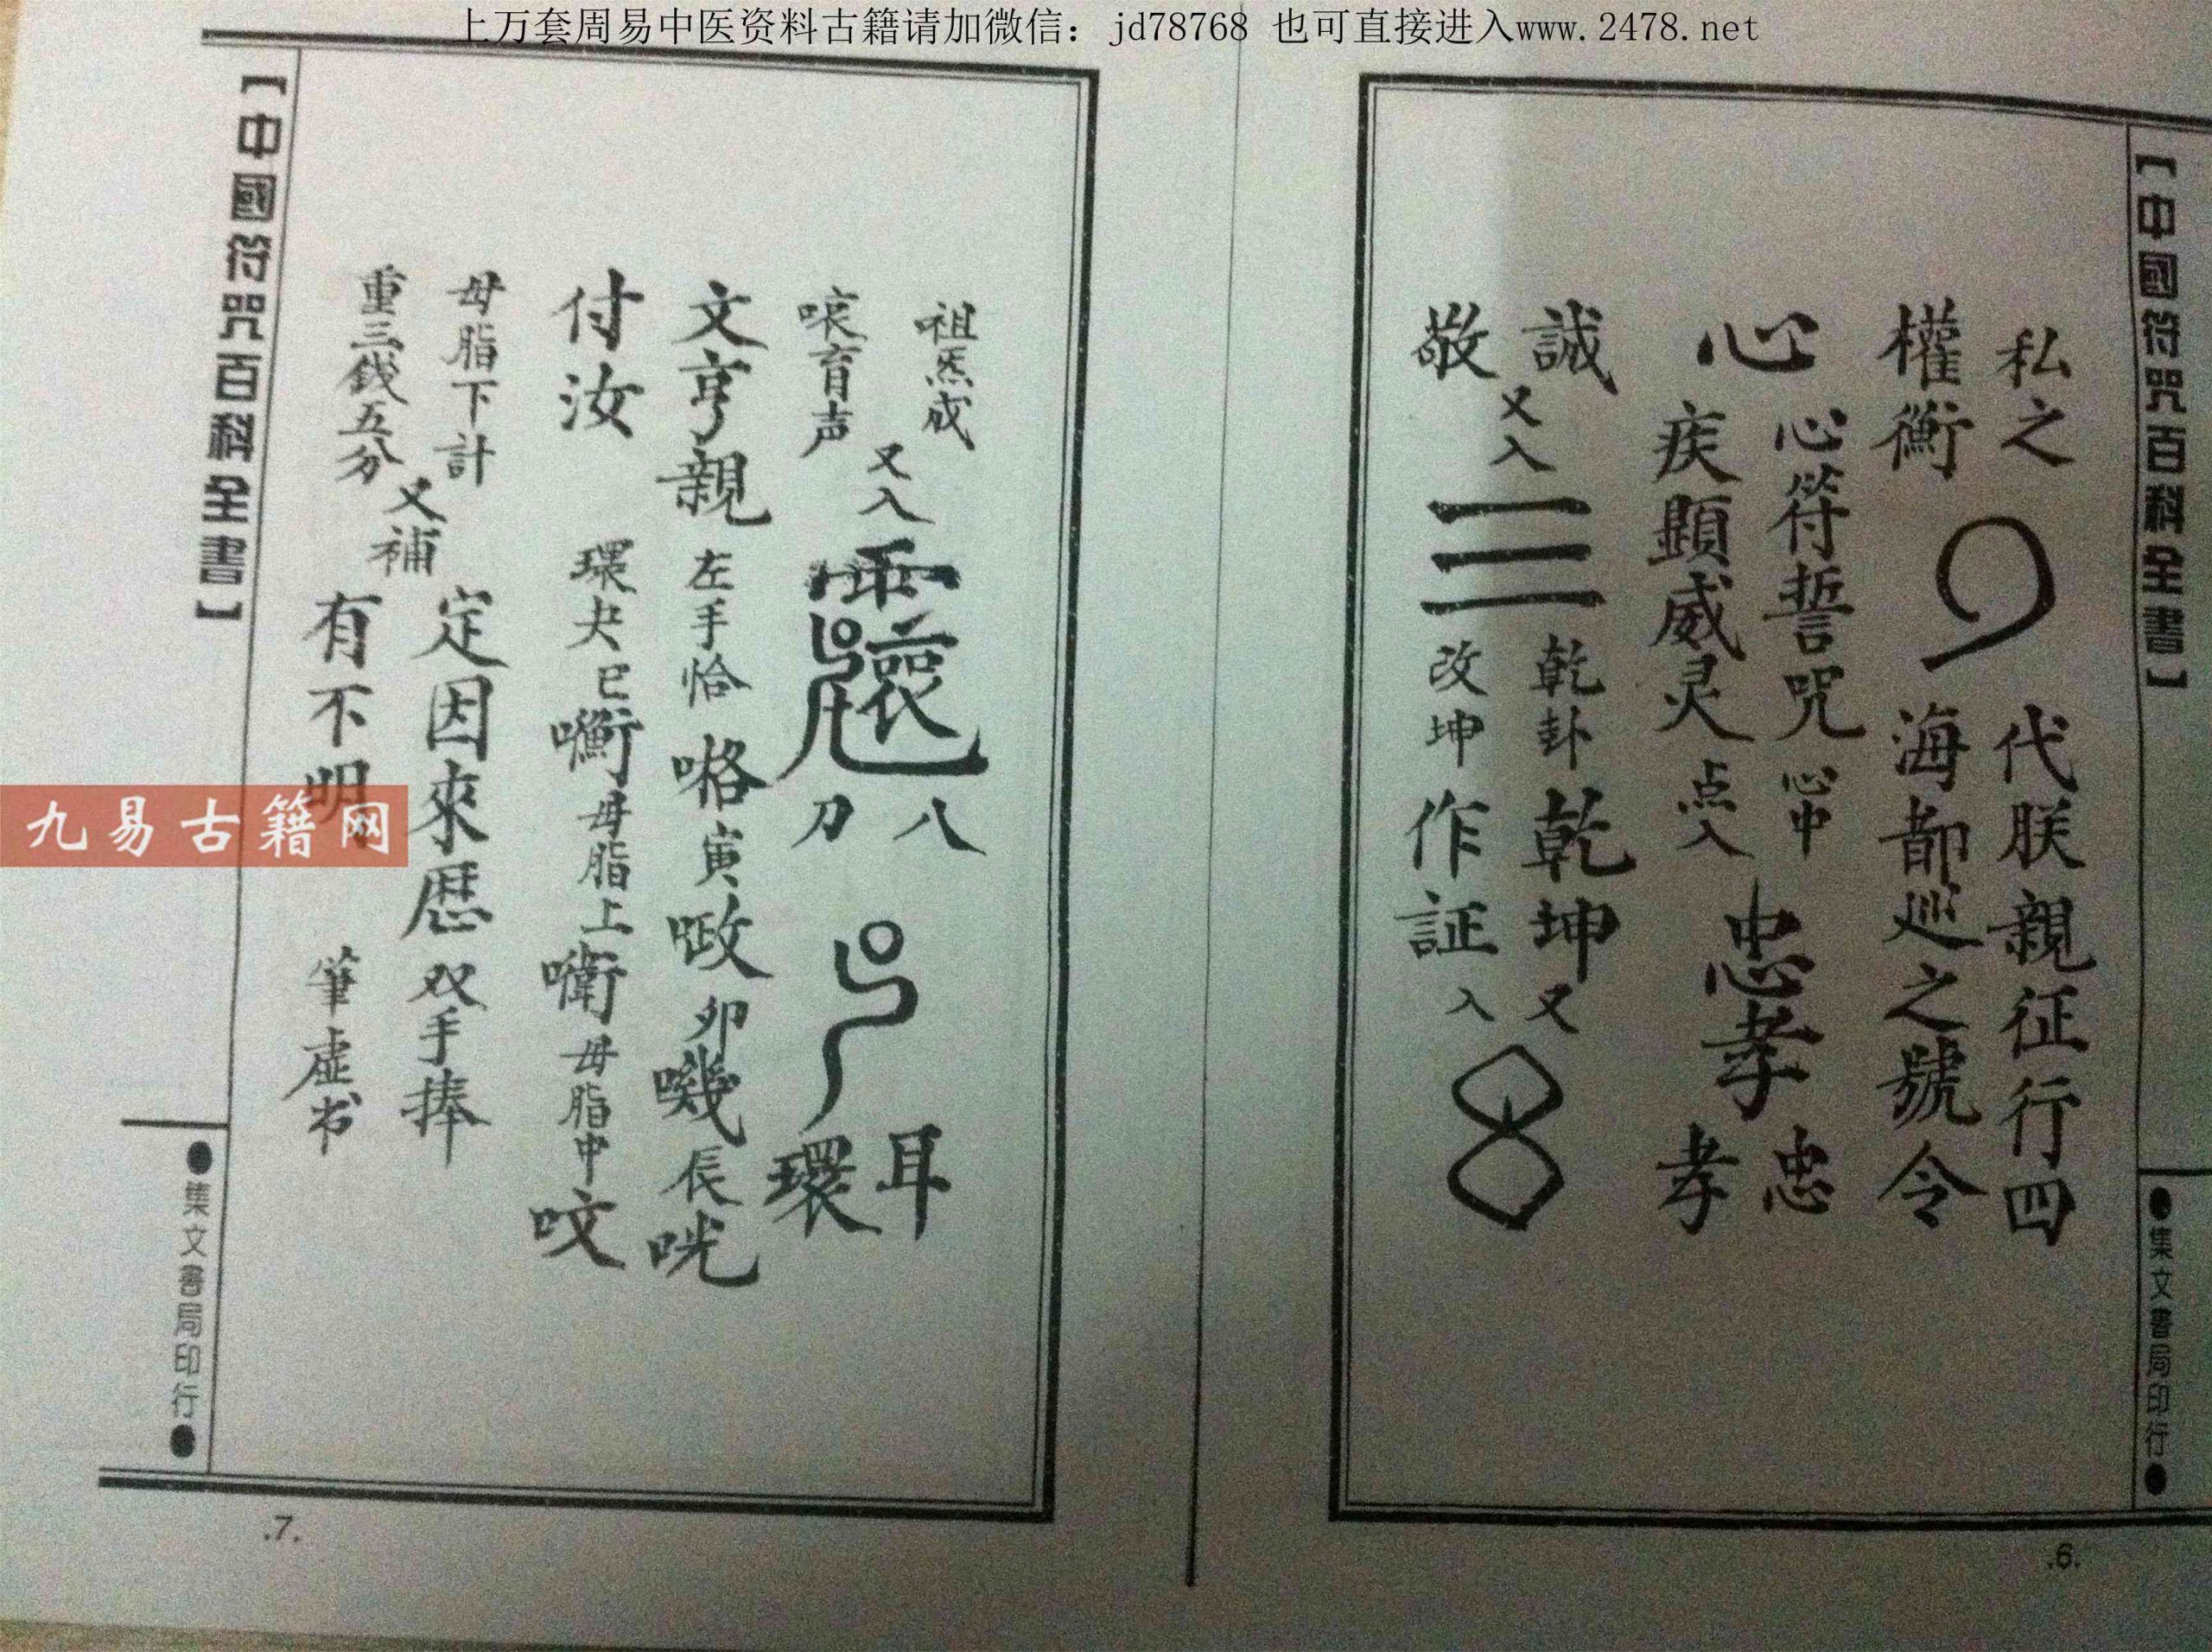 上万套周易中医资料古籍请加微信：jd78768 也可直接进入www.2478.net
【中國符咒百科全書】
私之
權衡
代朕親征行四
海都巡之號令
心
心符誓咒
心中
疾顯威灵
点入
忠孝
忠
孝
誠
敬
又入
乾卦
改坤
乾坤又
作証入
●集文書局印行●
.6.
祖炁成
育声
又入
八
刀
耳
環
文亨親
左手恰
寅
卯
長
咣
付汝
環
巳
母脂上
母脂中
咬
母脂下計
重三錢五分
又補
定因來歴
双手捧
有不明
筆虛书
【中國符咒百科全書】
●集文書局印行●
.7.
九易古籍网